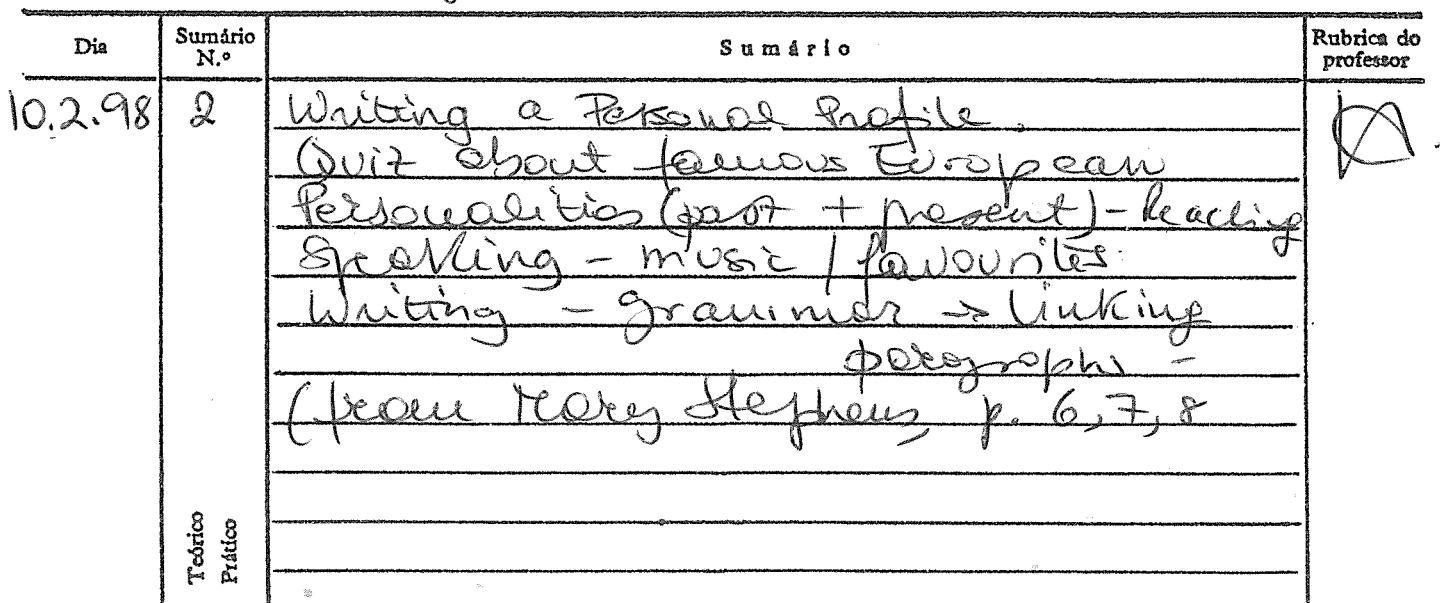 Dia Sumário N.º Sumário Rubrica do professor
10.2.98 2 Writing a Personal Profile.
Quiz about famous European
Personalities (past + present) - Reading
Speaking - music / favourites.
Writing - grammar → linking
paragraphs -
(from Mary Stephens, p. 6, 7, 8
Teórico
Prático